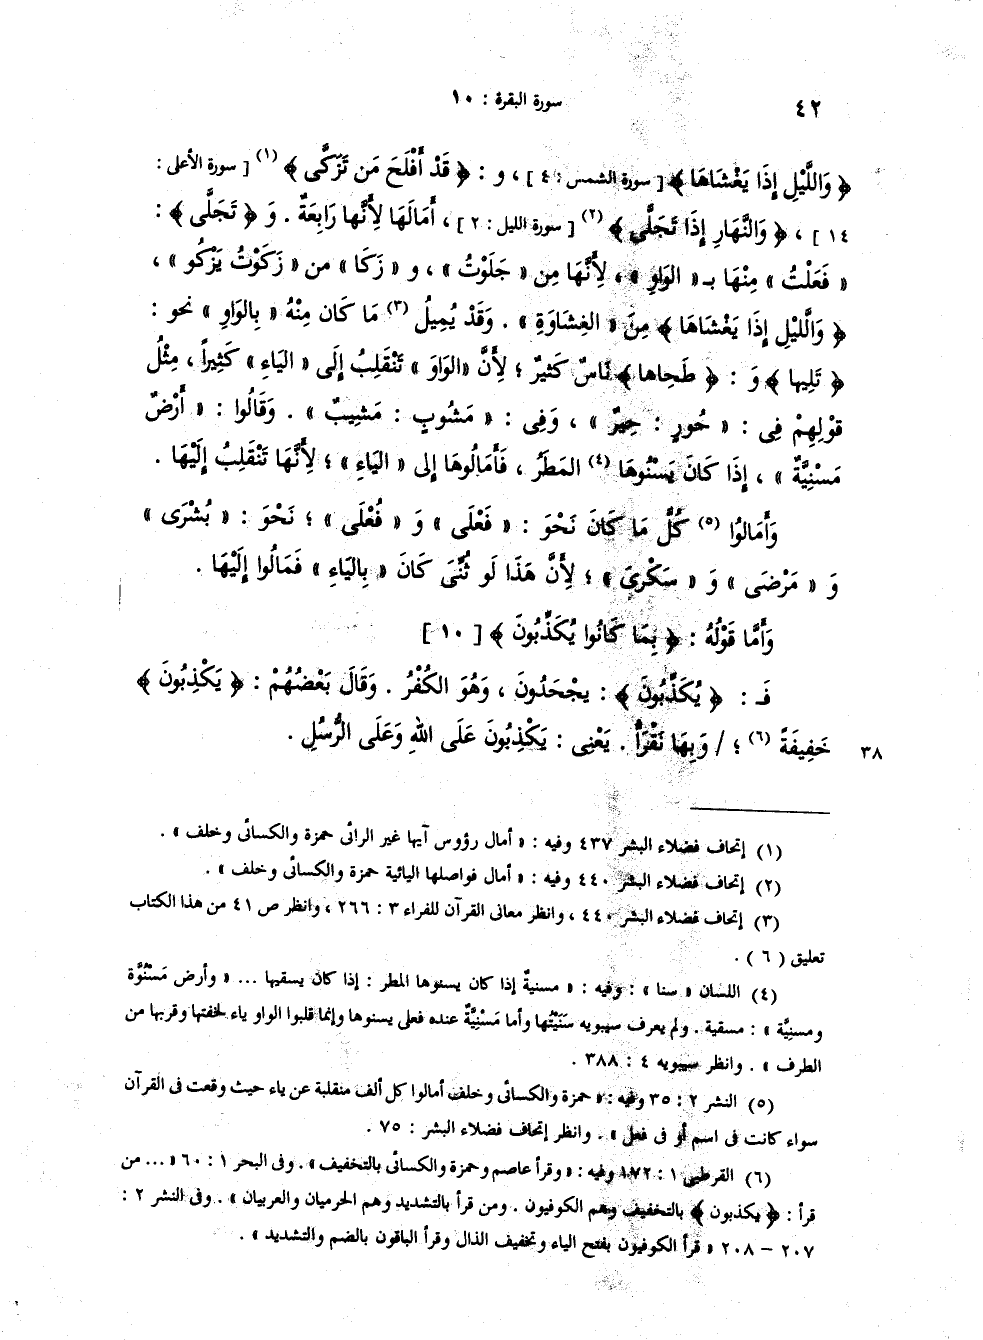 ٤٢
سورة البقرة : ١٠
﴿ وَاللَّيْلِ إِذَا يَغْشَاهَا ﴾ [ سورة الشمس : ٤ ] ، و : ﴿ قَدْ أَفْلَحَ مَن تَزَكَّى ﴾ (١) [ سورة الأعلى :
١٤ ] ، ﴿ وَالنَّهَارِ إِذَا تَجَلَّى ﴾ (٢) [ سورة الليل : ٢ ] ، أَمَالَهَا لِأَنَّها رَابِعَةٌ . وَ ﴿ تَجَلَّى ﴾ :
« فَعَلْتُ » مِنْهَا بـ « الوَاوِ » ، لِأَنَّهَا مِن « جَلَوْتُ » ، و « زَكَا » من « زَكَوْتُ يَزْكُو » ،
﴿ وَالَّليْلِ إِذَا يَغْشَاهَا ﴾ مِنَ « الغِشَاوَةِ » . وَقَدْ يُمِيلُ (٣) مَا كَان مِنْهُ « بِالوَاوِ » نحو :
﴿ تَلِيها ﴾ وَ : ﴿ طَحِاها ﴾ نَاسٌ كَثيرٌ ؛ لِأَنَّ «الوَاوَ » تَنْقَلِبُ إِلَى « اليَاءِ » كَثِيراً ، مِثْلُ
قوْلِهِمْ فِى : « حُورٍ : حِيرٌ » ، وَفِى : « مَشُوبٍ : مَشِيبٌ » . وَقَالُوا : « أَرْضٌ
مَسْنِيَّةٌ » ، إِذَا كَانَ يَسْنُوهَا (٤) المَطَرُ ، فَأَمَالُوهَا إلى « اليَاءِ » ؛ لِأَنَّهَا تَنْقَلِبُ إِلَيْهَا .
وَأَمَالوُا (٥) كُلَّ مَا كَانَ نَحْوَ : « فَعْلَى » وَ « فُعْلَى » ؛ نَحْوَ : « بُشْرَى »
وَ « مَرْضَى » وَ « سَكْرىَ » ؛ لِأَنَّ هَذَا لَو ثُنِّىَ كَانَ « بِاليَاءِ » فَمَالُوا إِلَيْهَا .
وَأَمَّا قَوْلُهُ : ﴿ بِمَا كَانُوا يُكَذِّبُونَ ﴾ [ ١٠ ]
فَـ : ﴿ يُكَذِّبُونَ ﴾ : يجْحَدُونَ ، وَهُوَ الكُفْرُ . وَقَالَ بَعْضُهُمْ : ﴿ يَكْذِبُونَ ﴾
٣٨ خَفِيفَةً (٦) ؛ / وَبِهَا نَقْرَأُ . يَعْنِى : يَكْذِبُونَ عَلَى اللهِ وَعَلَى الرُّسُلِ .
(١) إتحاف فضلاء البشر ٤٣٧ وفيه : « أمال رؤوس آيها غير الرائى حمزة والكسائى وخلف » .
(٢) إتحاف فضلاء البشر ٤٤٠ وفيه : « أمال فواصلها اليائية حمزة والكسائى وخلف » .
(٣) إتحاف فضلاء البشر ٤٤٠ ، وانظر معانى القرآن للفراء ٣ : ٢٦٦ ، وانظر ص ٤١ من هذا الكتاب
تعليق ( ٦ ) .
(٤) اللسان « سنا » : وفيه : « مسنيةٌ إذا كان يسنوها المطر : إذا كان يسقيها ... « وأرض مَسْنُوَّة
ومسنِيَّة » : مسقية . ولم يعرف سيبويه سَنَيْتُها وأما مَسْنِيَّةٌ عنده فعلى يسنوها وإنما قلبوا الواو ياء لخفتها وقربها من
الطرف » . وانظر سيبويه ٤ : ٣٨٨ .
(٥) النشر ٢ : ٣٥ وفيه : « حمزة والكسائى وخلف أمالوا كل ألف منقلبة عن ياء حيث وقعت فى القرآن
سواء كانت فى اسم أو فى فعل » . وانظر إتحاف فضلاء البشر : ٧٥ .
(٦) القرطبى ١ : ١٧٢ وفيه : « وقرأ عاصم وحمزة والكسائى بالتخفيف » . وفى البحر ١ : ٦٠ « ... من
قرأ : ﴿ يكذبون ﴾ بالتخفيف وهم الكوفيون . ومن قرأ بالتشديد وهم الحرميان والعربيان » . وفى النشر ٢ :
٢٠٧ – ٢٠٨ « قرأ الكوفيون بفتح الياء وتخفيف الذال وقرأ الباقون بالضم والتشديد » .